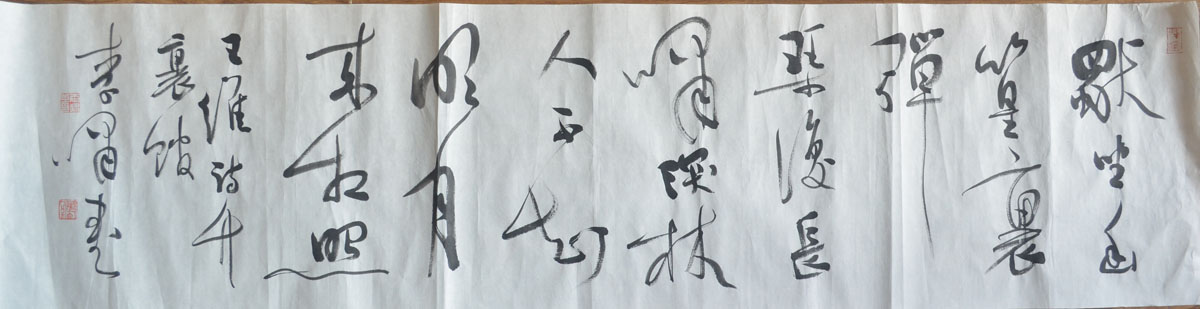 獨坐幽
篁裏
彈
琴復長
嘯深林
人不知
明月
来相照
王維詩竹
裏館
嘯書